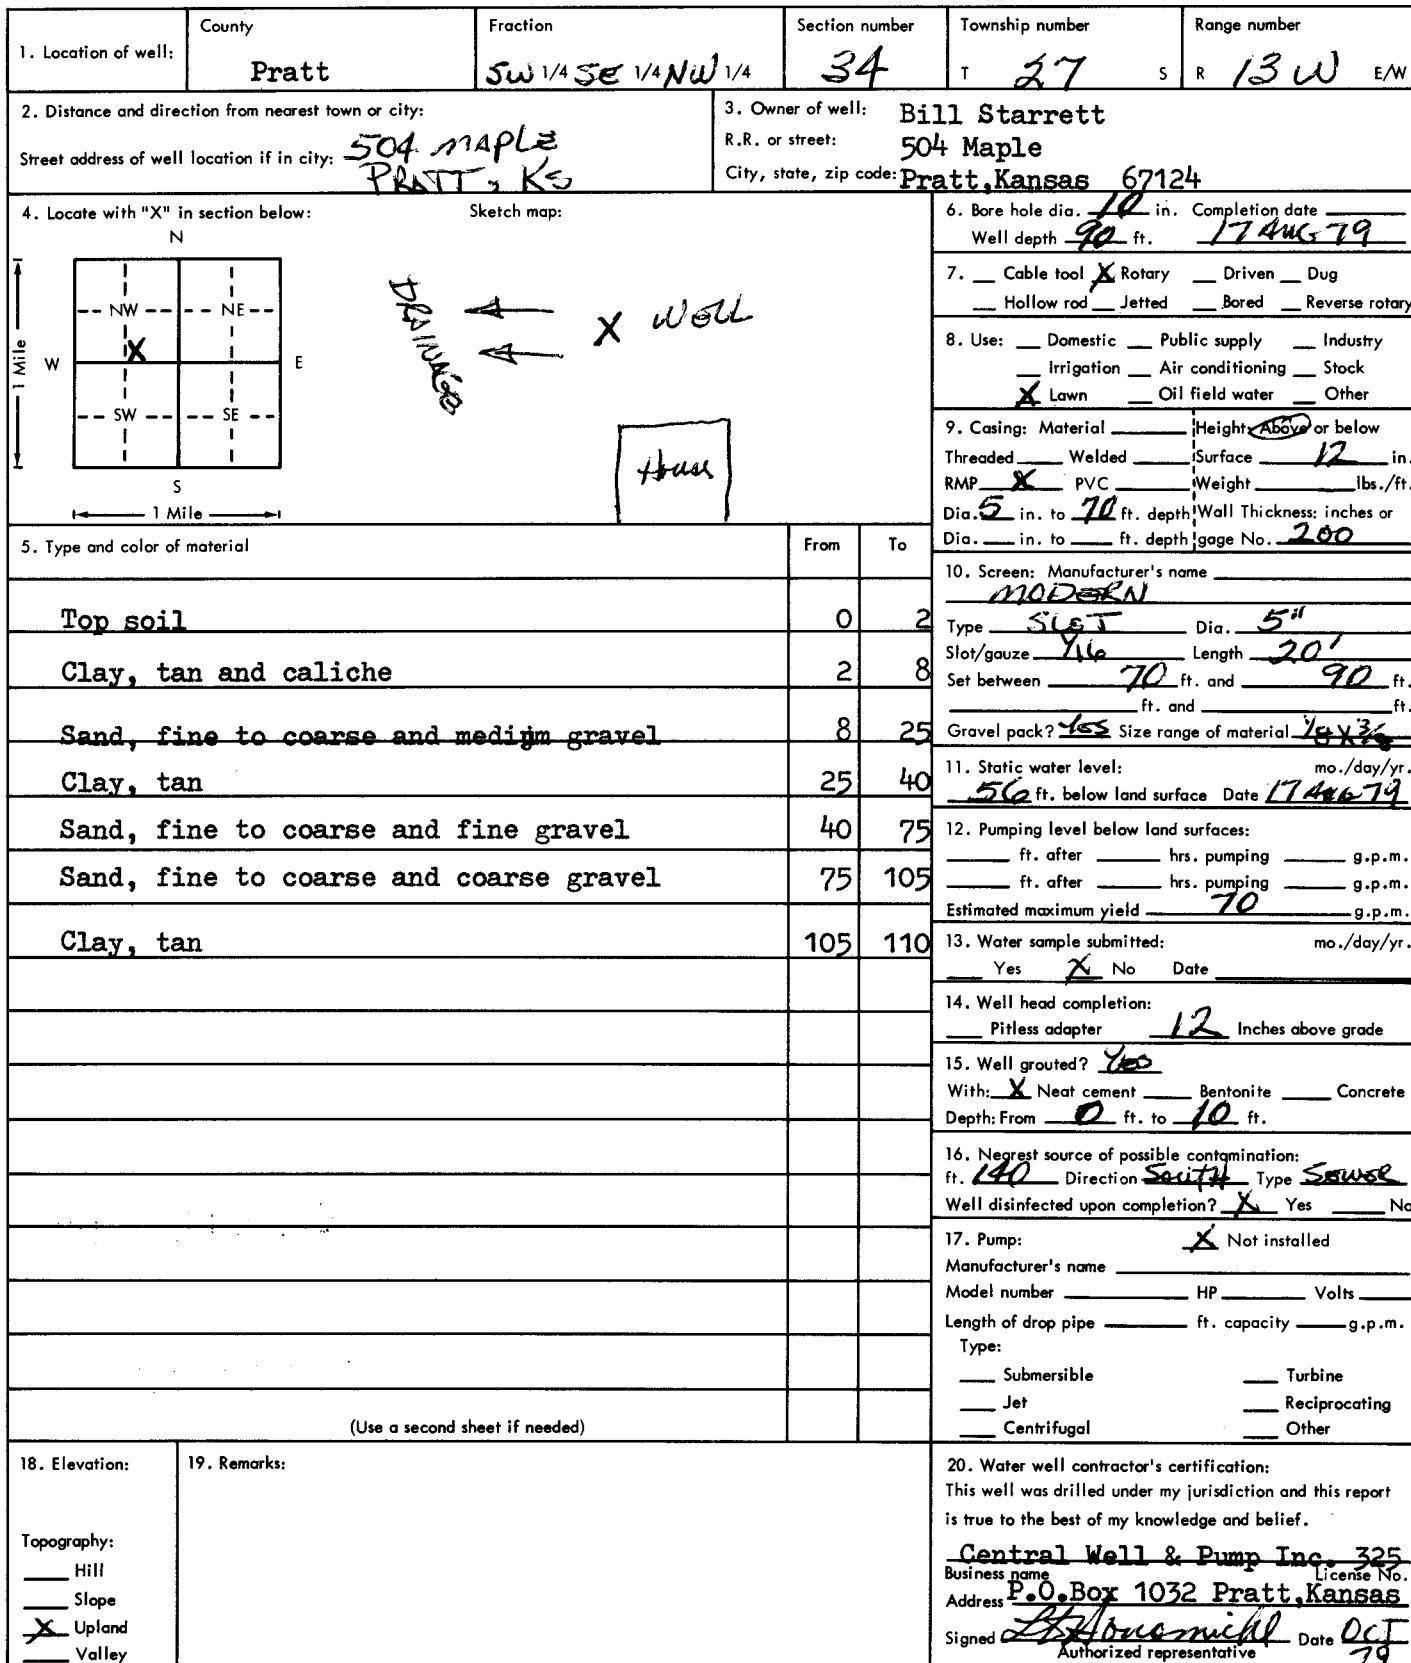 1. Location of well:
County
Pratt
Fraction
SW 1/4 SE 1/4 NW 1/4
Section number
34
Township number
T 27 S
Range number
R 13 W E/W
2. Distance and direction from nearest town or city:
Street address of well location if in city: 504 MAPLE
PRATT, KS
3. Owner of well: Bill Starrett
R.R. or street: 504 Maple
City, state, zip code: Pratt,Kansas 67124
4. Locate with "X" in section below:
Sketch map:
N
NW NE
X
W E
SW SE
S
1 Mile
1 Mile
DRAINAGE
X WELL
House
5. Type and color of material From To
Top soil 0 2
Clay, tan and caliche 2 8
Sand, fine to coarse and medium gravel 8 25
Clay, tan 25 40
Sand, fine to coarse and fine gravel 40 75
Sand, fine to coarse and coarse gravel 75 105
Clay, tan 105 110
(Use a second sheet if needed)
6. Bore hole dia. 10 in. Completion date
Well depth 90 ft. 17 AUG 79
7. Cable tool X Rotary Driven Dug
Hollow rod Jetted Bored Reverse rotary
8. Use: Domestic Public supply Industry
Irrigation Air conditioning Stock
X Lawn Oil field water Other
9. Casing: Material Height: Above or below
Threaded Welded Surface 12 in.
RMP X PVC Weight lbs./ft.
Dia. 5 in. to 70 ft. depth Wall Thickness: inches or
Dia. in. to ft. depth gage No. 200
10. Screen: Manufacturer's name
MODERN
Type SLOT Dia. 5"
Slot/gauze 1/16 Length 20'
Set between 70 ft. and 90 ft.
ft. and ft.
Gravel pack? Yes Size range of material 1/8 X 3/8
11. Static water level: mo./day/yr.
56 ft. below land surface Date 17 AUG 79
12. Pumping level below land surfaces:
ft. after hrs. pumping g.p.m.
ft. after hrs. pumping g.p.m.
Estimated maximum yield 70 g.p.m.
13. Water sample submitted: mo./day/yr.
Yes X No Date
14. Well head completion:
Pitless adapter 12 Inches above grade
15. Well grouted? Yes
With: X Neat cement Bentonite Concrete
Depth: From 0 ft. to 10 ft.
16. Nearest source of possible contamination:
ft. 140 Direction South Type Sewer
Well disinfected upon completion? X Yes No
17. Pump: X Not installed
Manufacturer's name
Model number HP Volts
Length of drop pipe ft. capacity g.p.m.
Type:
Submersible Turbine
Jet Reciprocating
Centrifugal Other
18. Elevation:
Topography:
Hill
Slope
X Upland
Valley
19. Remarks:
20. Water well contractor's certification:
This well was drilled under my jurisdiction and this report
is true to the best of my knowledge and belief.
Central Well & Pump Inc. 325
Business name License No.
Address P.O.Box 1032 Pratt,Kansas
Signed Date OCT
Authorized representative 79